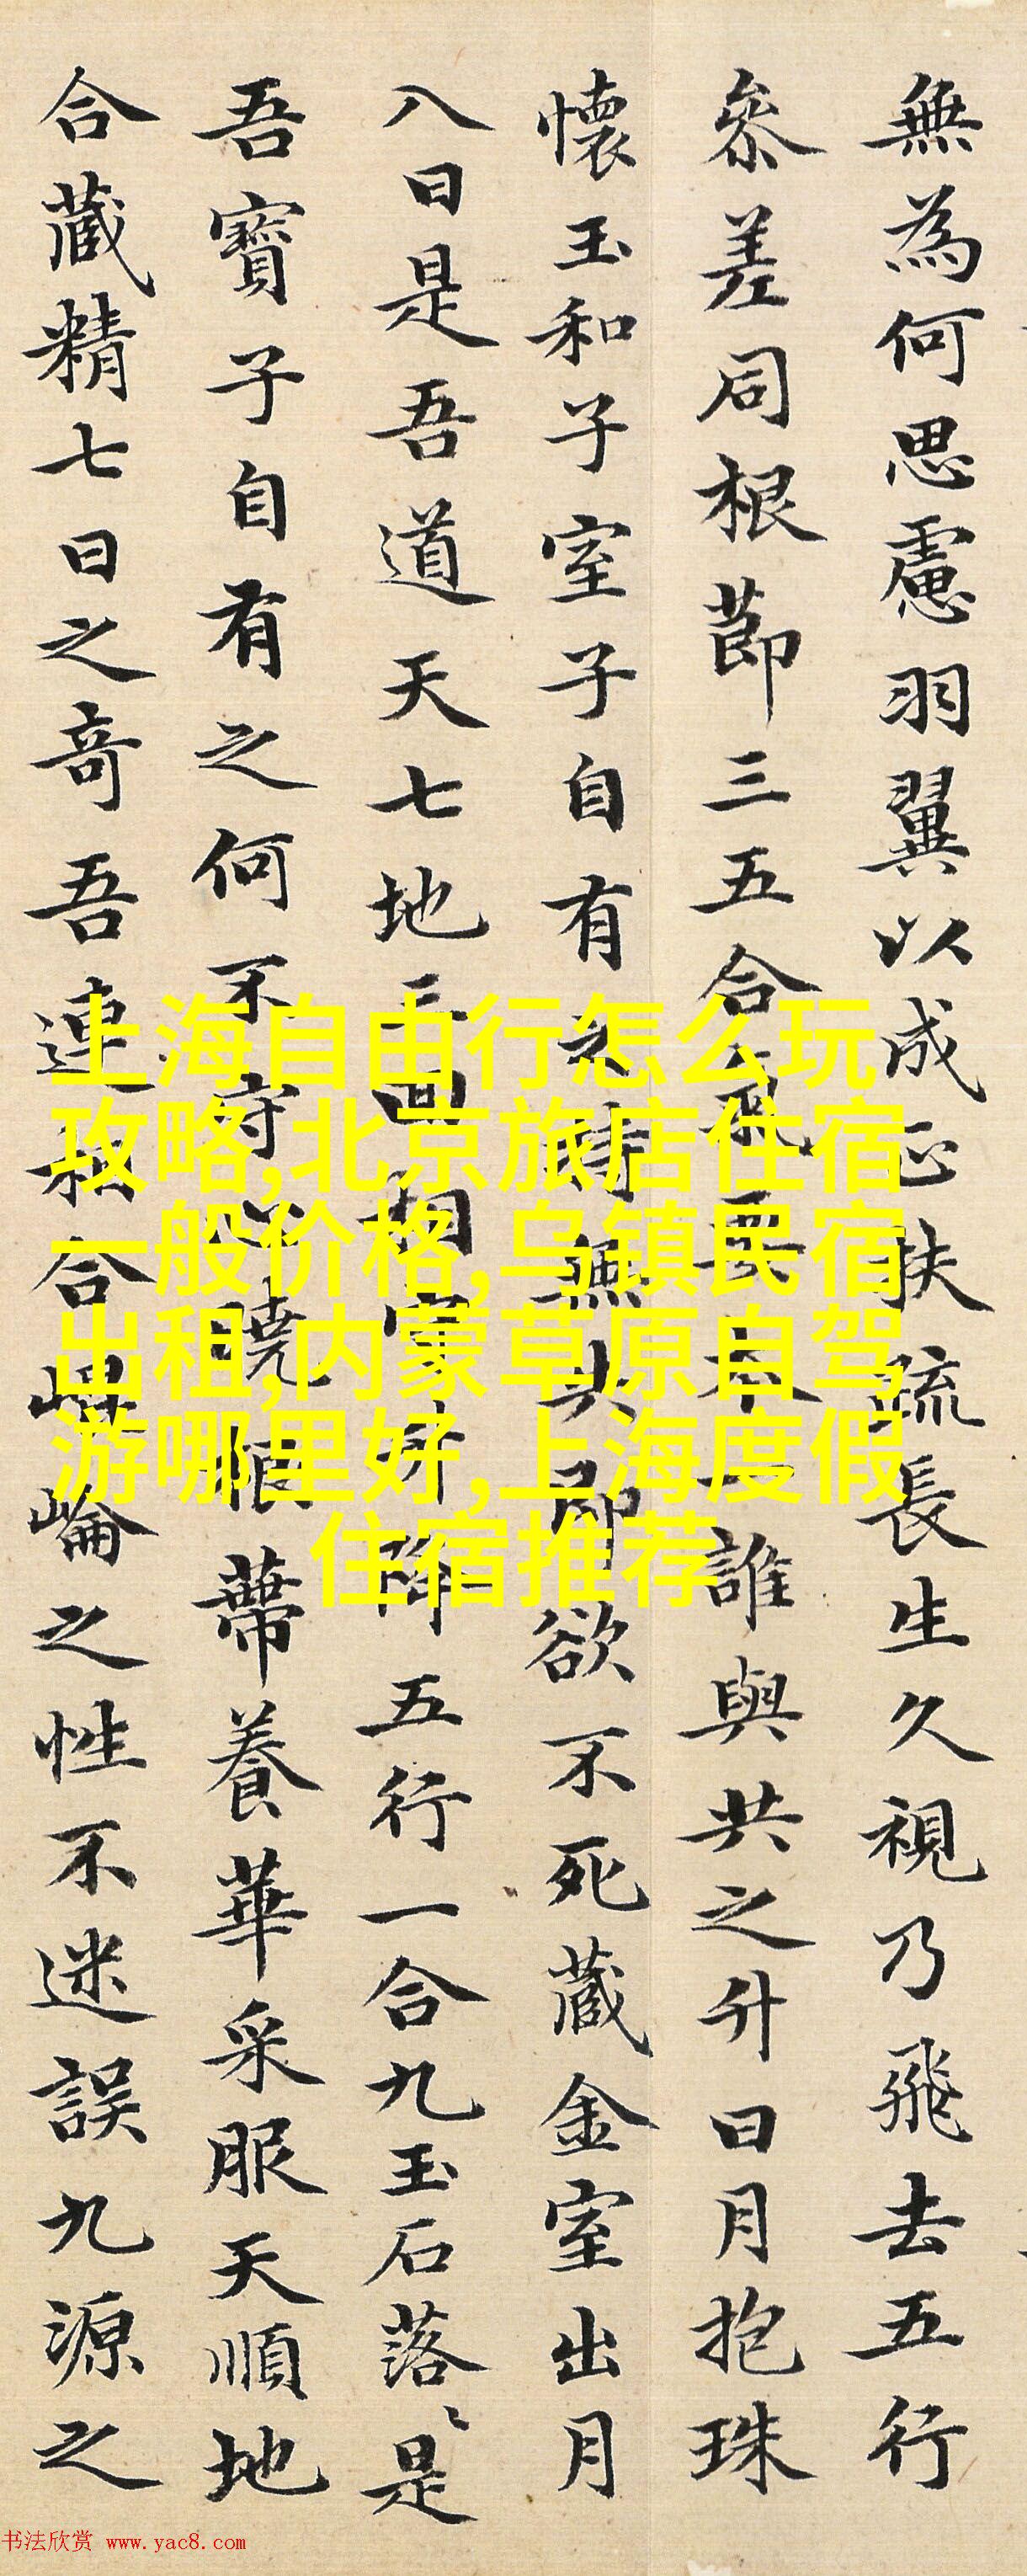 無為何思慮羽翼以成正扶疏長生久視乃飛去五行
參差同根節三五合氣要本一誰與共之升日月抱珠
懷玉和子室子自有之持無失即欲不死藏金室出月
入日是吾道天七地三回相守升降五行一合九玉石落〻是
吾寶子自有之何不守心曉根蔕養華采服天順地
合藏精七日之奇吾連相合崐崘之性不迷誤九源之
上海自由行怎么玩
攻略,北京旅店住宿
一般价格,乌镇民宿
出租,内蒙草原自驾
游哪里好,上海度假
住宿推荐
书法欣赏 www.yac8.com